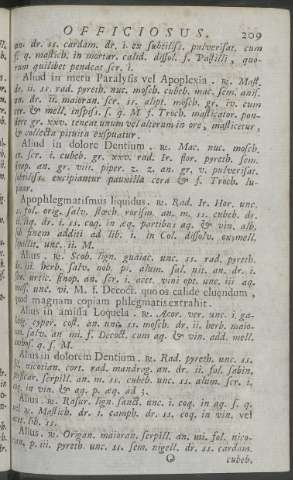 OFFICIOSUS. 209
an. dr. ss. cardam. dr. i. ex subtiliss. pulverisat. cum
s. q. mastich. in mortar. calid. dissol. f. Pastilli, quo-
rum quilibet pendeat scr. i.
Aliud in metu Paralysis vel Apoplexia. ℞. Mast.
dr. ii. ss. rad. pyreth. nuc. mosch. cubeb. mac. sem. anis.
an. dr. ii. maioran. scr. ss. alipt. mosch. gr. iv. cum
& mell. inspiss. s. q. M f. Troch. masticator. pon-
dere gr. xxv. teneat unum vel alterum in ore, masticetur,
& collecta pituita exspuatur.
Aliud in dolore Dentium. ℞. Mac. nuc. mosch.
scr. i. cubeb. gr. xxv. rad. Ir. flor. pyreth. sem.
an. gr. viii. piper. z. z. an. gr. v. pulverisat.
excipiantur pauxilla cera & f. Troch. lu-
Apophlegmatismus liquidus. ℞. Rad. Ir. Hor. unc.
fol. orig. salv. stœch. rorism. an. m. ss. cubeb. dr.
dr. i. ss. coq. in æq. partibus aq. & vin. alb.
finem additi ad lib. i. in Col. dissolv. oxymell.
unc. ii. M.
Alius. ℞. Scob. lign. guaiac. unc. ss. rad. pyreth.
iii. herb. salv. nob. p. alum. sal. nit. an. dr. i.
sinap. an. scr. i. acet. vini opt. unc. iii aq.
unc. vi. M f. Decoct. quo os calide eluendum,
quod magnam copiam phlegmatis extrahit.
Alius in amissa Loquela. ℞. Acor. ver. unc. i ga-
cyper. cost. an. unc. ss. mosch. dr. ii. herb. maio-
salv. an mi. f. Decoct. cum aq. & vin. add. mell.
s. q. f. M.
Alius in dolorem Dentium. ℞. Rad. pyreth. unc. ss.
nicotian. cort. rad. mandrag. an. dr. ii. fol. sabin.
serpill. an. m. ss. cubeb. unc. ss. alum. scr. i.
in vin. & aq. p. æq. ad
Alius. ℞. Rasur. lign. sanct. unc. i. coq. in aq. s. q.
℞ Mastich. dr. i. camph. dr. ss. coq. in vin. vel
lib. ss.
Alius. ℞. Origan. maioran. serpill. an. mi. fol. nico-
p. iii. pyreth. unc. ss. sem. nigell. dr. ss. cardam.
Q cubeb.